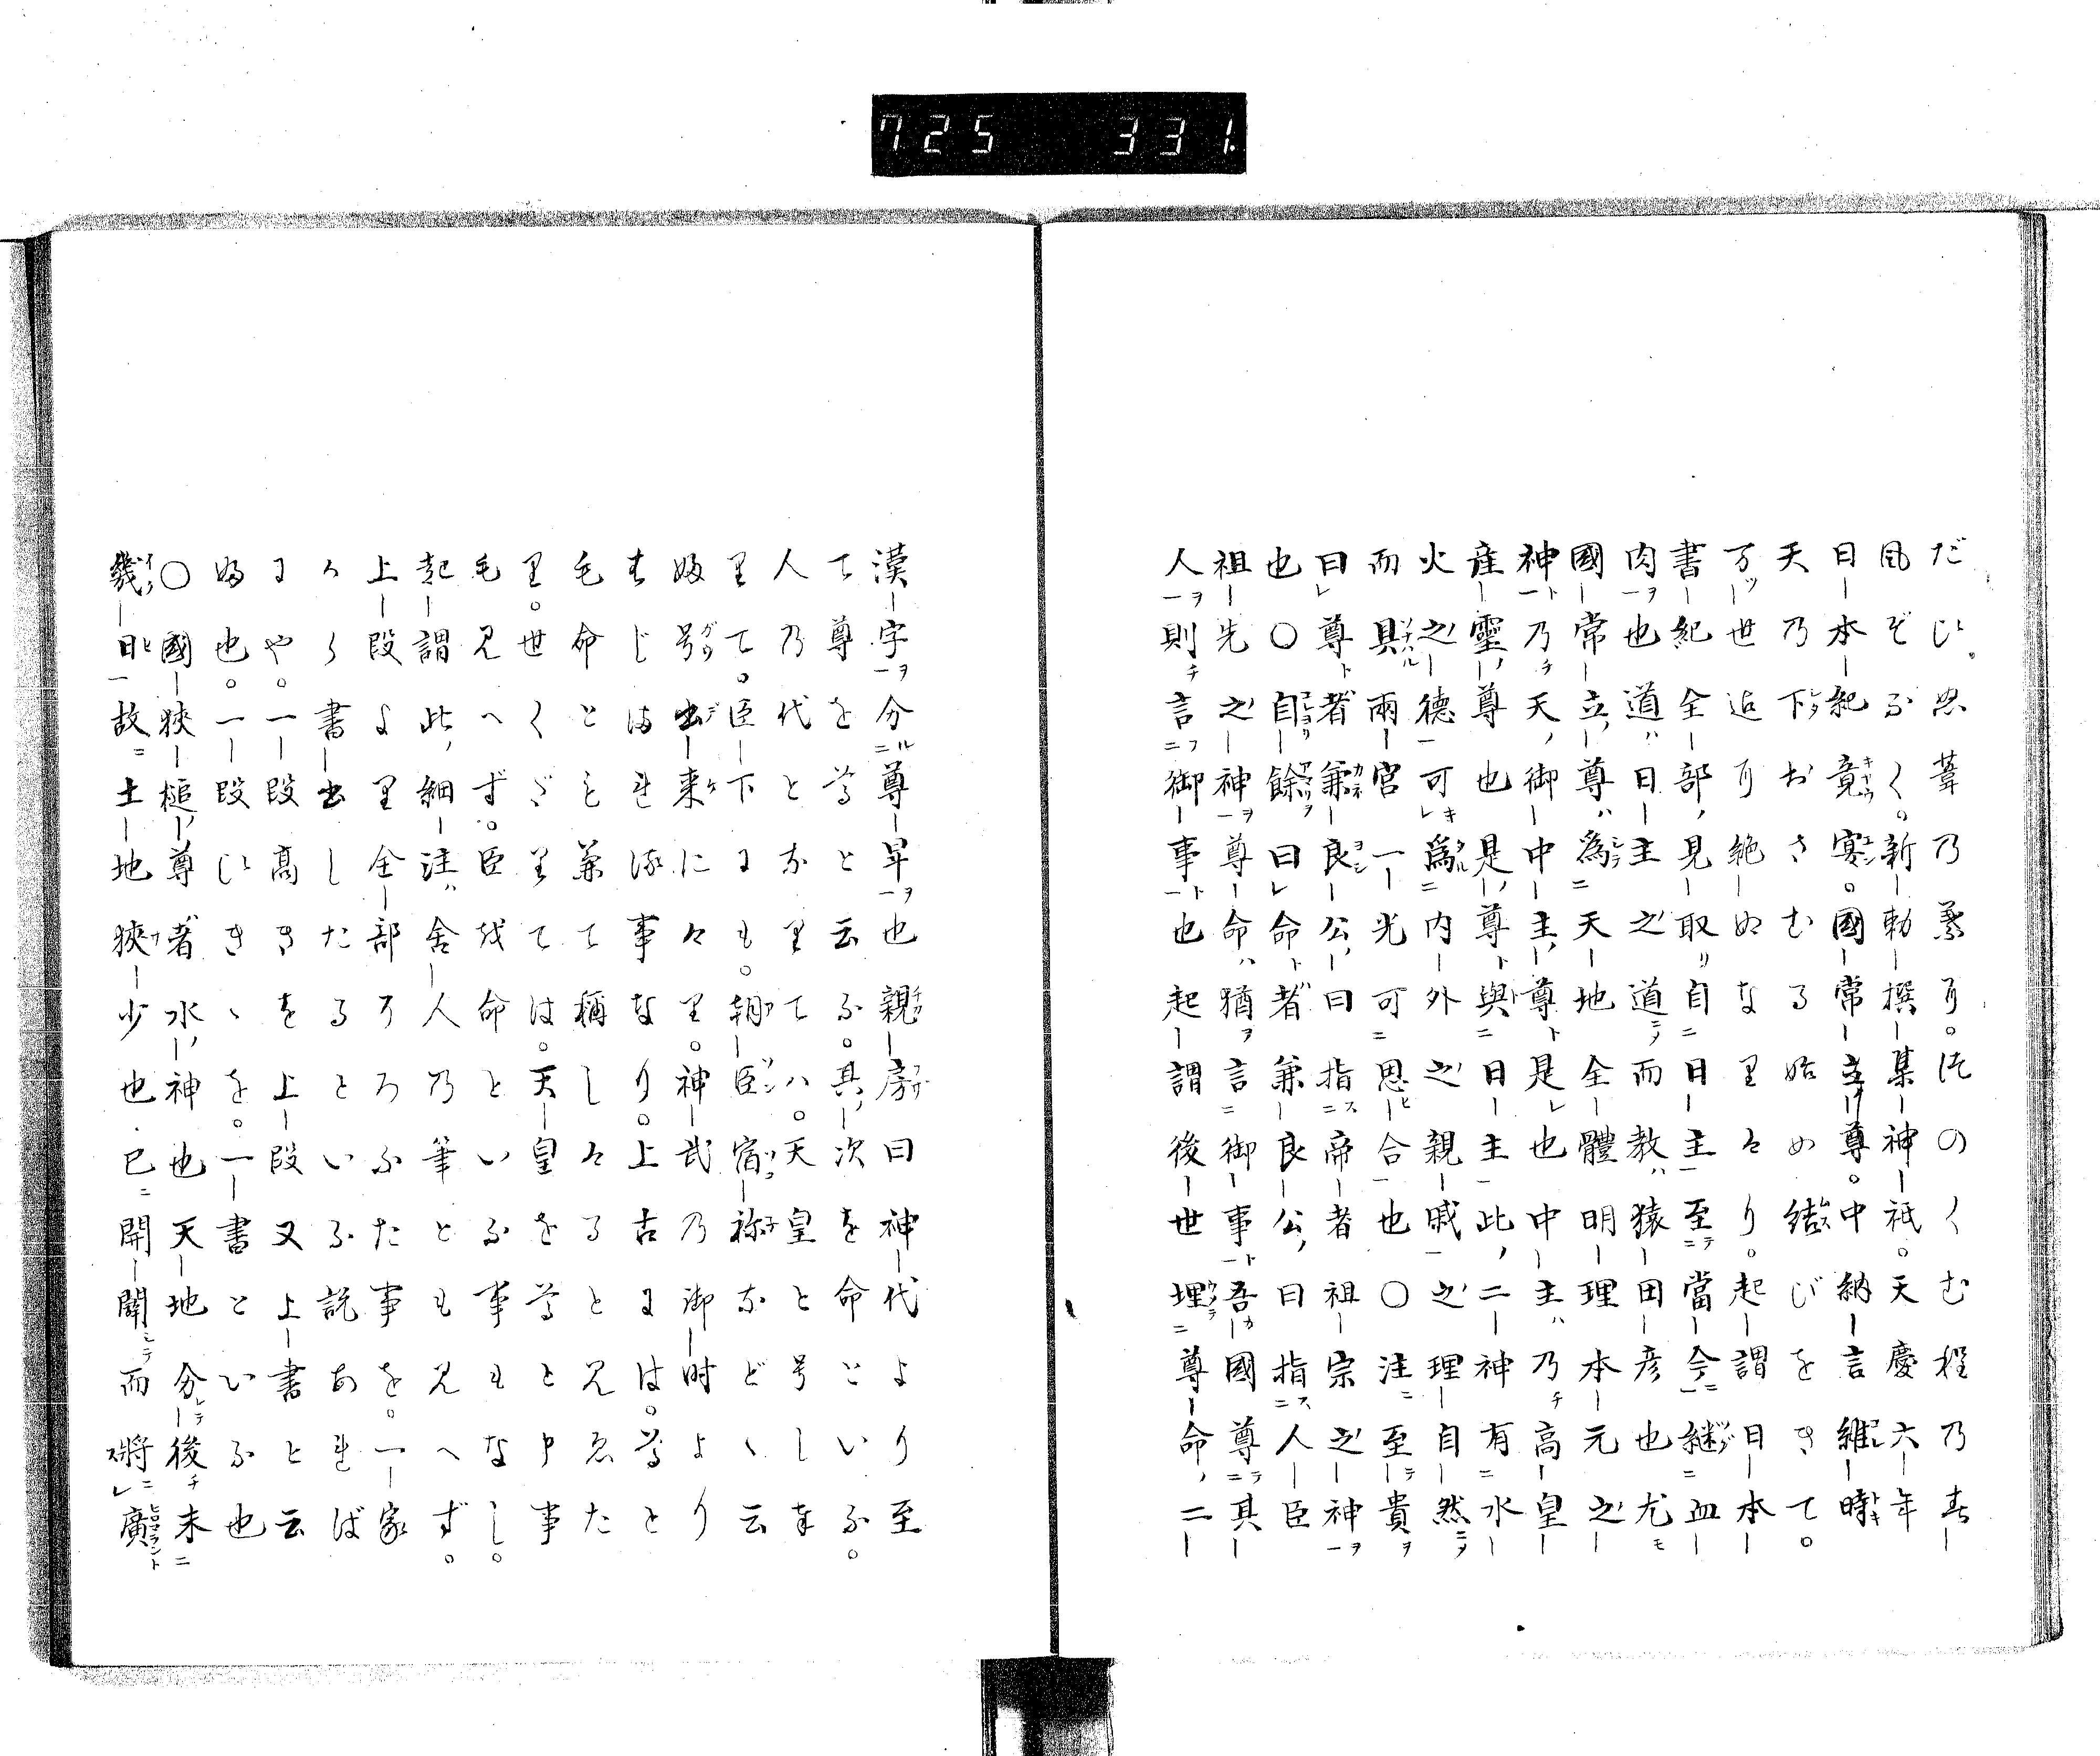 725 331.
だひ。思葦乃葉耳。徒のくむ程乃春
風ぞふく。新勅撰集神祇。天慶六年
日本紀竟宴。國常立尊。中納言維時
天乃下おさむる始め結びをきて。
万世迠耳絶ぬなりけり。起謂日本
書紀全部見取自日主至當今継血
肉也道日主之道而教猿田彦也尤
國常立尊為天地全體明理本元之
神乃天御中主尊是也中主乃高皇
産靈尊也是尊與日主此二神有水
火之德可為内外之親戚之理自然
而具兩宮一光可思合也〇注至貴
曰尊者兼良公曰指帝者祖宗之神
也〇自餘曰命者兼良公曰指人臣
祖先之神尊命猶言御事吾國尊其
人則言御事也起謂後世埋尊命二
漢字分尊卑也親房曰神代より至
て尊を尊と云ふ。其次を命といふ。
人乃代となりてハ。天皇と号し奉
里て。臣下にも。朝臣宿祢など〻云
ふ号出来にけり。神武乃御時より
はじまれる事なり。上古には。尊と
毛命とを兼て稱しけるとみゑた
里。世くだりては。天皇を尊と申事
毛見へず。臣を命といふ事もなし。
起謂此細注舍人乃筆とも見へず。
上段より全部耳ろふた事を。一家
かく書出したるといふ説あれば
にや。一段高きを上段又上書と云
ふ也。一段ひきゝを。一書といふ也
〇國狹槌尊者水神也天地分後未
幾日故土地狹少也已開闢而將廣